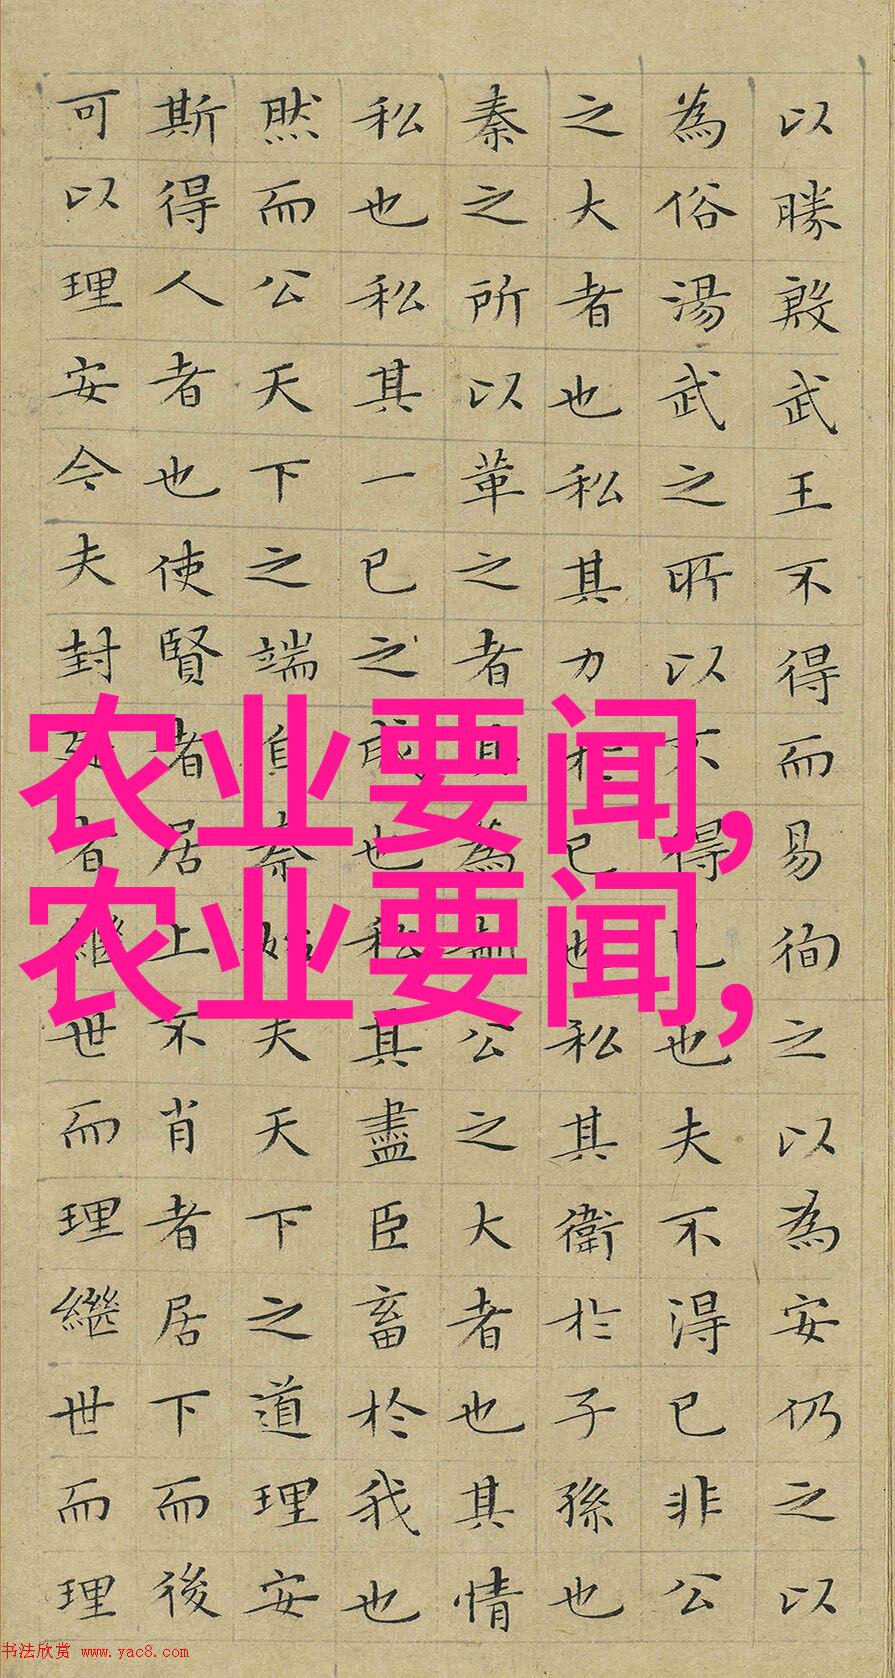 以勝殷武王不得而易徇之以為安仍之以
為俗湯武之所以不得已也夫不得已非公
之大者也私其力於已也私其衛於子孫也
秦之所以革之者其為制公之大者也其情
私也私其一已之威也私其盡臣畜於我也
然而公天下之端自秦始夫天下之道理安
斯得人者也使賢者居上不肖者居下而後
可以理安今夫封建者繼世而理繼世而理
农业要闻,
农业要闻,
书法欣赏 www.yac8.com